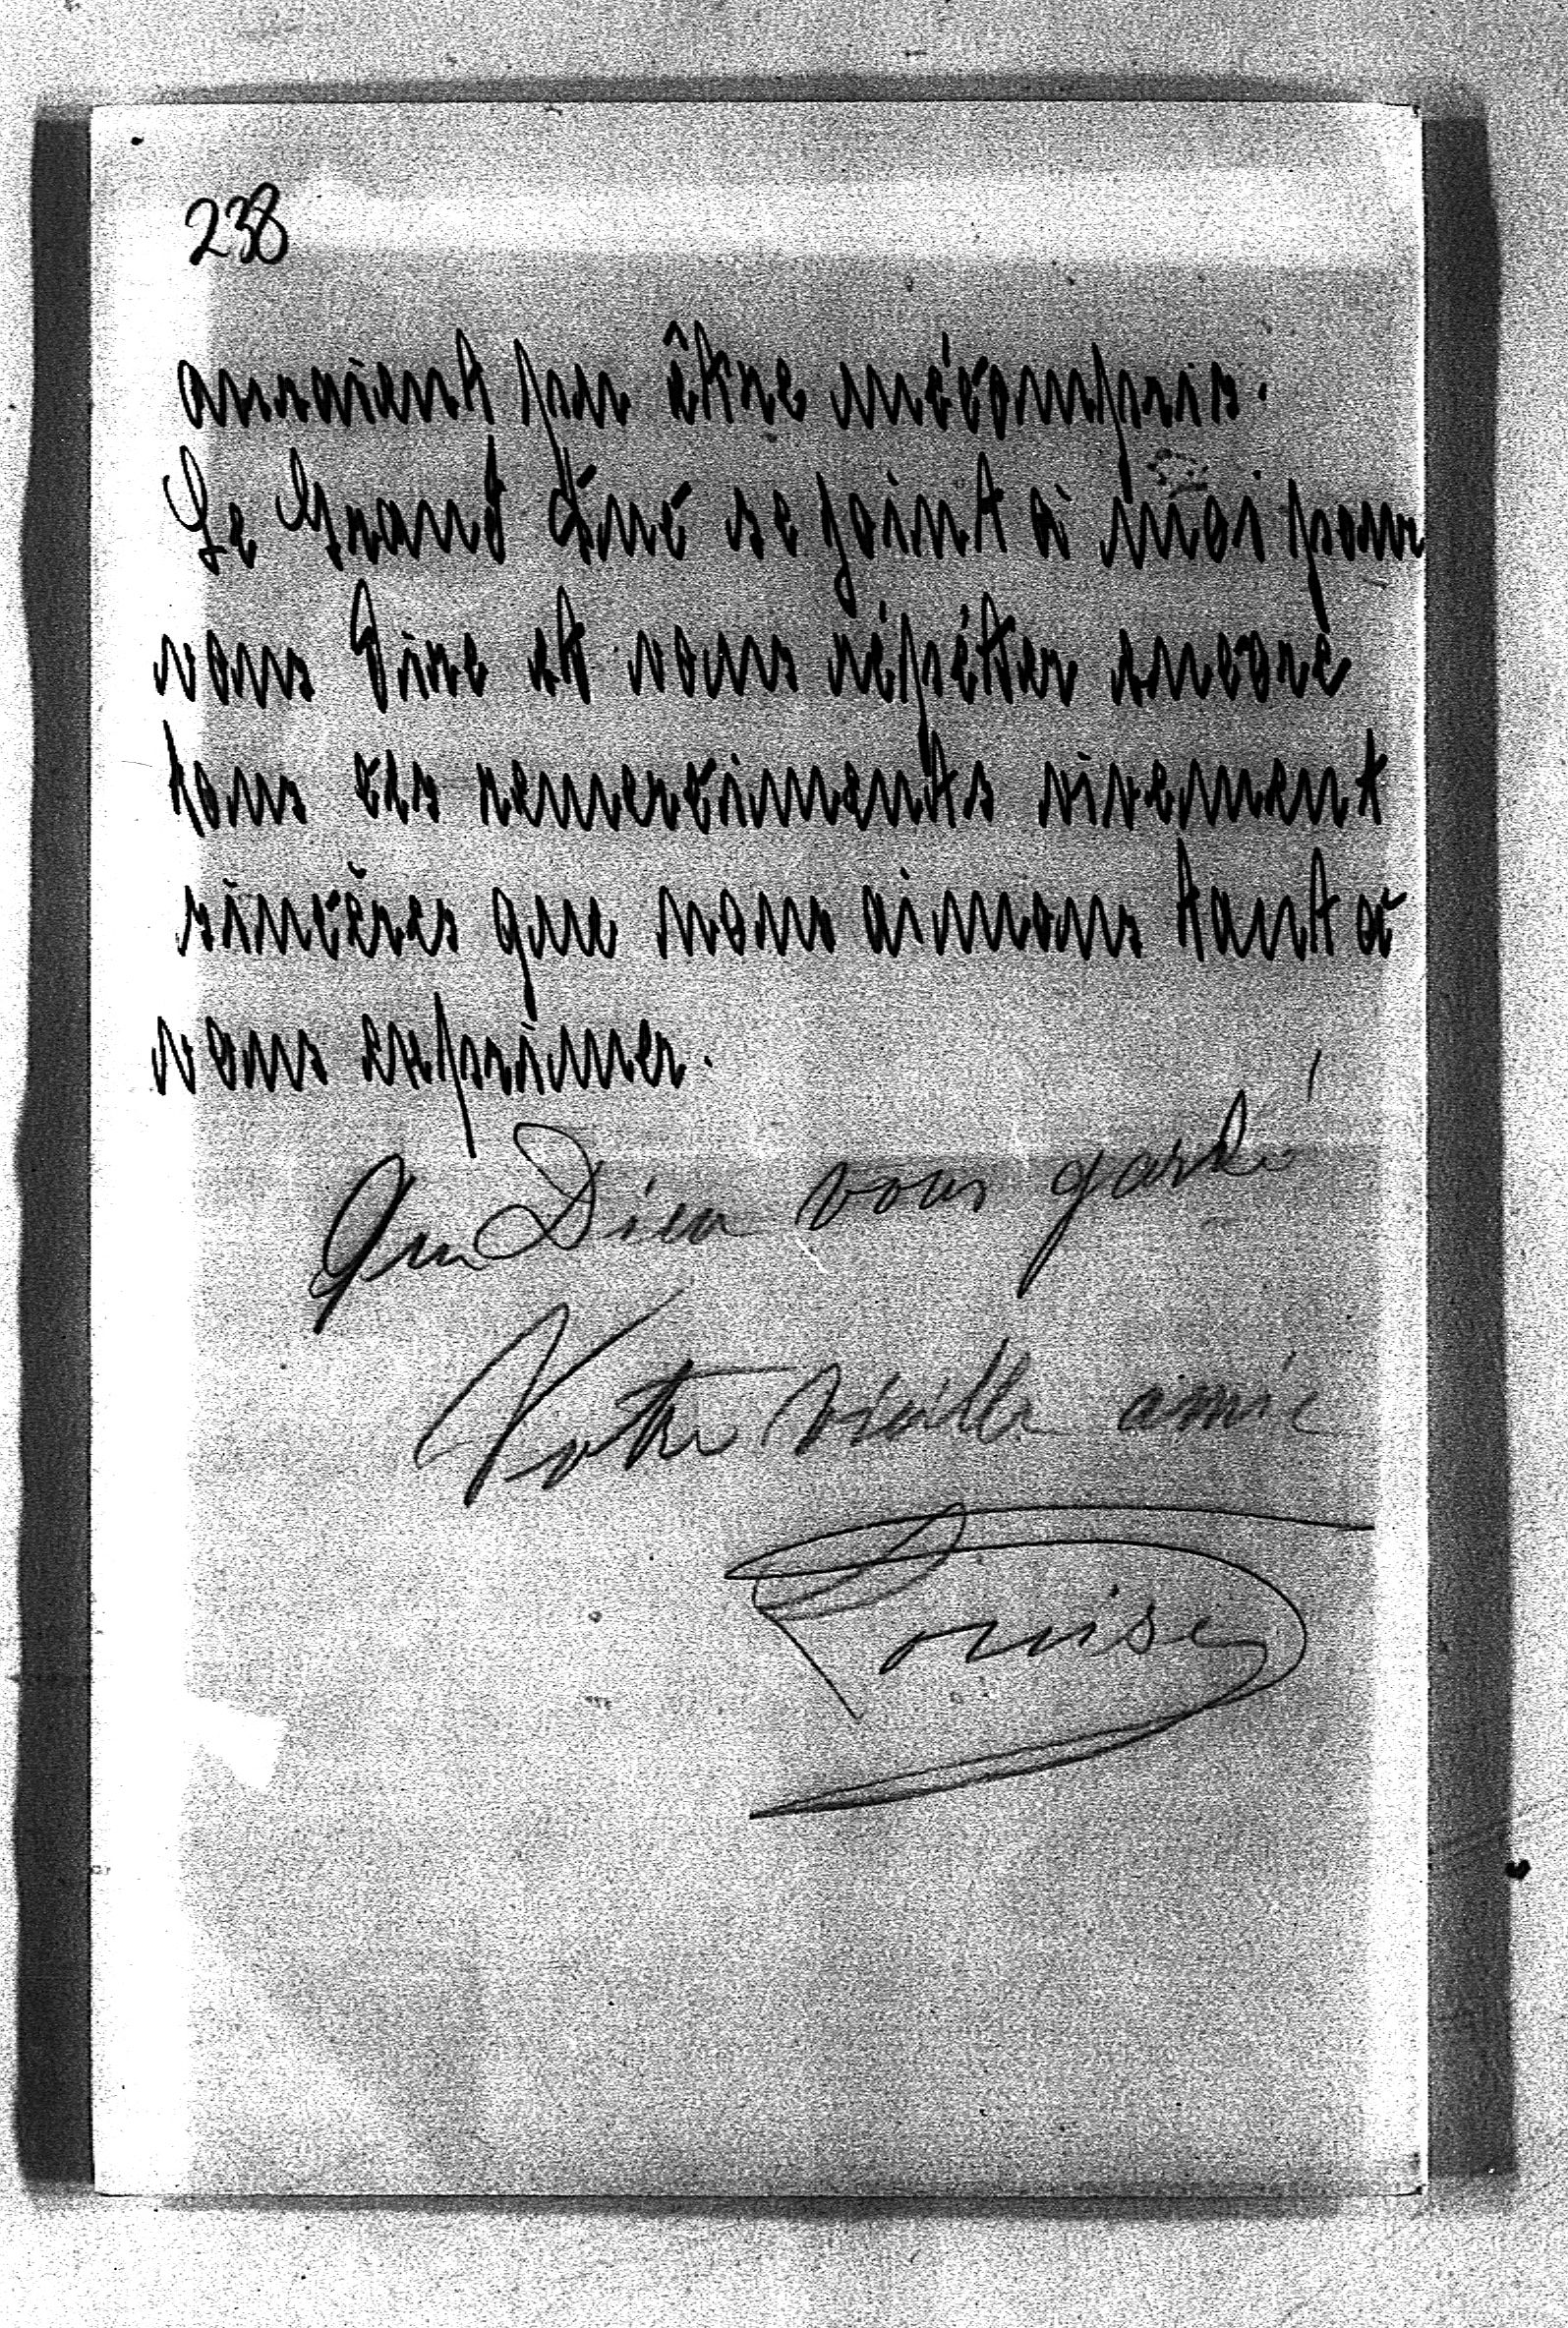 238
auraient pu être mécompris.
Le Grand Aîné se joint à moi pour
vous dire et vous répéter encore
tous ces remercîments vivement
sincères que nous aimons tant à
vous exprimer.
Que Dieu vous garde!
Votre vieille amie
Louise